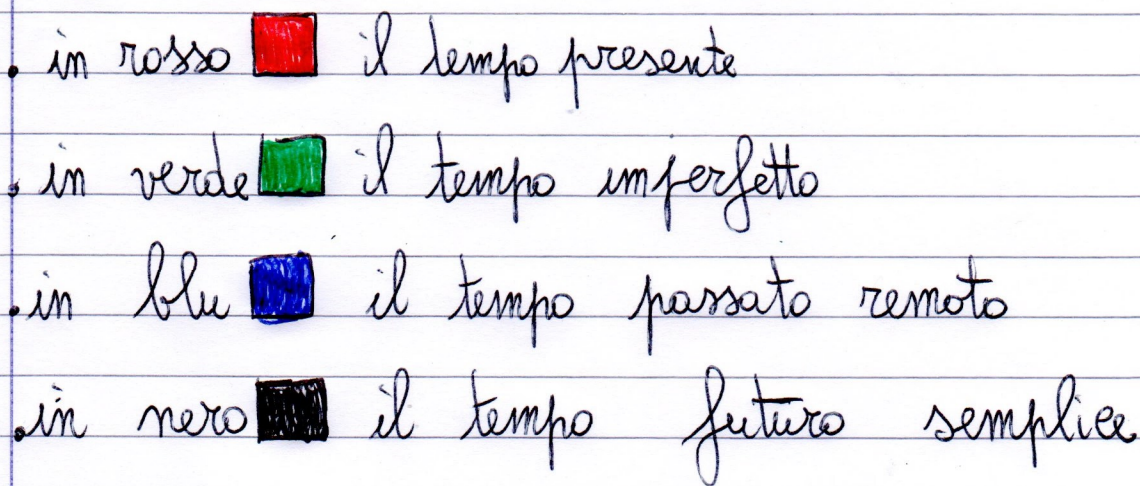 . in rosso il tempo presente
. in verde il tempo imperfetto
. in blu il tempo passato remoto
. in nero il tempo futuro semplice